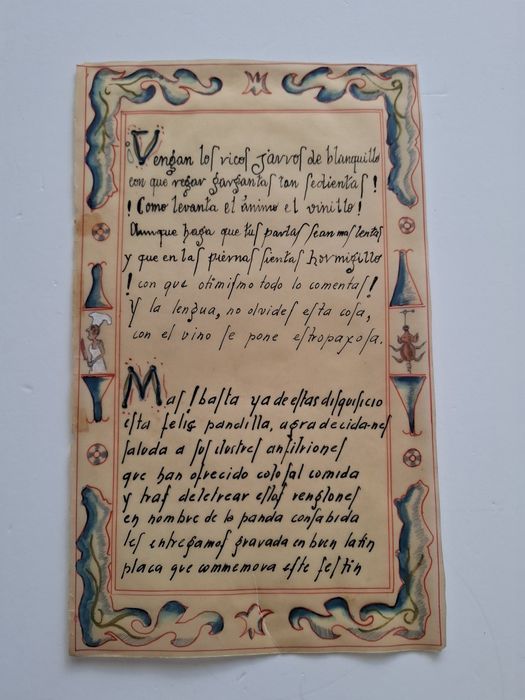 ¡Vengan los ricos jarros de blanquillo
con que regar gargantas tan sedientas!
! Como levanta el ánimo el vinillo!
Aunque haga que tus parlas sean mas lentas
y que en las piernas sientas hormigillo
! con que otimismo todo lo comentas!
Y la lengua, no olvides esta cosa,
con el vino se pone estropaxosa.
Mas! basta ya de estas disquisicio
esta feliz pandilla, agradecida-nes
saluda a sos ilustres anfitriones
que han ofrecido colosal comida
y tras deletrear estos renglones
en nombre de la panda consabida
les entregamos gravada en buen latin
placa que commemora este festin